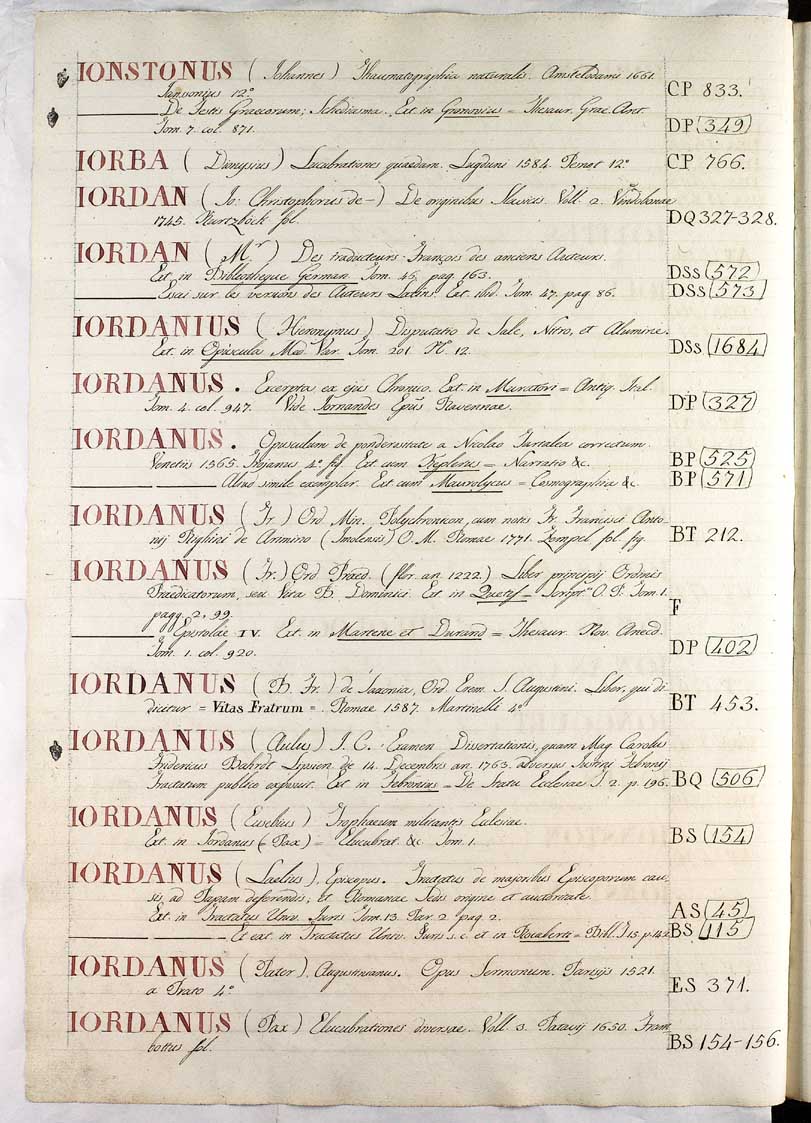 IONSTONUS ( Johannes ) Thaumatographia naturalis. Amstelodami 1661.
Janssonius 12º CP 833.
De Festis Graecorum; Schediasma. Ext. in Gronovius = Thesaur. Grae. Ant.
Tom. 7. col. 871. DP 349
IORBA ( Dionysius ) Lucubrationes quaedam. Lugduni 1584. Pesnot 12º CP 766.
IORDAN ( Jo: Christophorus de - ) De originibus Slavicis. Voll. 2. Vindobonae
1745. Kurtzböck fol. DQ 327-328.
IORDAN ( Mr ) Des traducteurs François des anciens Auteurs.
Ext. in Bibliotheque German. Tom. 45. pag. 163. DSs 572
Essai sur les versions des Auteurs Latins. Ext. ibid. Tom. 47. pag. 86. DSs 573
IORDANIUS ( Hieronymus ) Disputatio de Sale, Nitro, et Alumine.
Ext. in Opuscula Med. Var. Tom. 201. N. 12. DSs 1684
IORDANUS . Excerpta ex ejus Chronico. Ext. in Muratori = Antiq. Ital.
Tom. 4. col. 947. Vide Jornandes Epus Ravennae. DP 327
IORDANUS . Opusculum de ponderositate a Nicolao Tartalea correctum.
Venetiis 1565. Trojanus 4º fig. Ext. cum Keplerus = Narratio &c. BP 525
Aliud simile exemplar. Ext. cum Maurolycus = Cosmographia &c. BP 571
IORDANUS ( Fr. ) Ord. Min. Polychronicon, cum notis Fr. Francisci Anto-
nij Righini de Arimino ( Imolensis ) O. M. Romae 1771. Zempel fol. fig. BT 212.
IORDANUS ( Fr. ) Ord. Praed. ( flor. an. 1222. ) Liber principij Ordinis
Praedicatorum, seu Vita B. Dominici. Ext. in Quetif = Script. O. P. Tom. 1.
pagg. 2. 99. F
Epistolae IV. Ext. in Martene et Durand = Thesaur. Nov. Anecd.
Tom. 1. col. 920. DP 402
IORDANUS ( B. Fr. ) de Saxonia, Ord. Erem. S. Augustini. Liber, qui di
dicitur = Vitas Fratrum = . Romae 1587. Martinelli 4º BT 453.
IORDANUS ( Aulus ) I. C. Examen Dissertationis, quam Mag. Carolus
Fridericus Bahrdt Lipsien. de 14. Decembris an. 1763. adversus Justini Febronij
Tractatum publico exposuit. Ext. in Febronius = De Statu Ecclesiae T. 2. p. 196. BQ 506
IORDANUS ( Eusebius ) Trophaeum militantis Eclesiae.
Ext. in Jordanus ( Pax ) = Elucubrat. &c. Tom. 1. BS 154
IORDANUS ( Laelius ), Episcopus. Tractatus de majoribus Episcoporum cau-
sis, ad Papam deferendis, et Romanae Sedis origine et auctoritate.
Ext. in Tractatus Univ. Juris Tom. 13. Par. 2. pag. 2. AS 45
Et ext. in Tractatus Univ. Juris s. c. et in Rocaberti = Bibl. T. 15. p. 142. BS 115
IORDANUS ( Pater ), Augustinianus. Opus Sermonum. Parisijs 1521.
a Prato 4º ES 371.
IORDANUS ( Pax ) Elucubrationes diversae. Voll. 3. Patavij 1650. Fram-
bottus fol. BS 154-156.